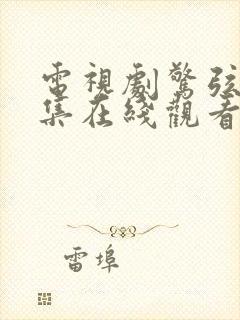 電視劇驚弦
集在綫觀看
雷埠